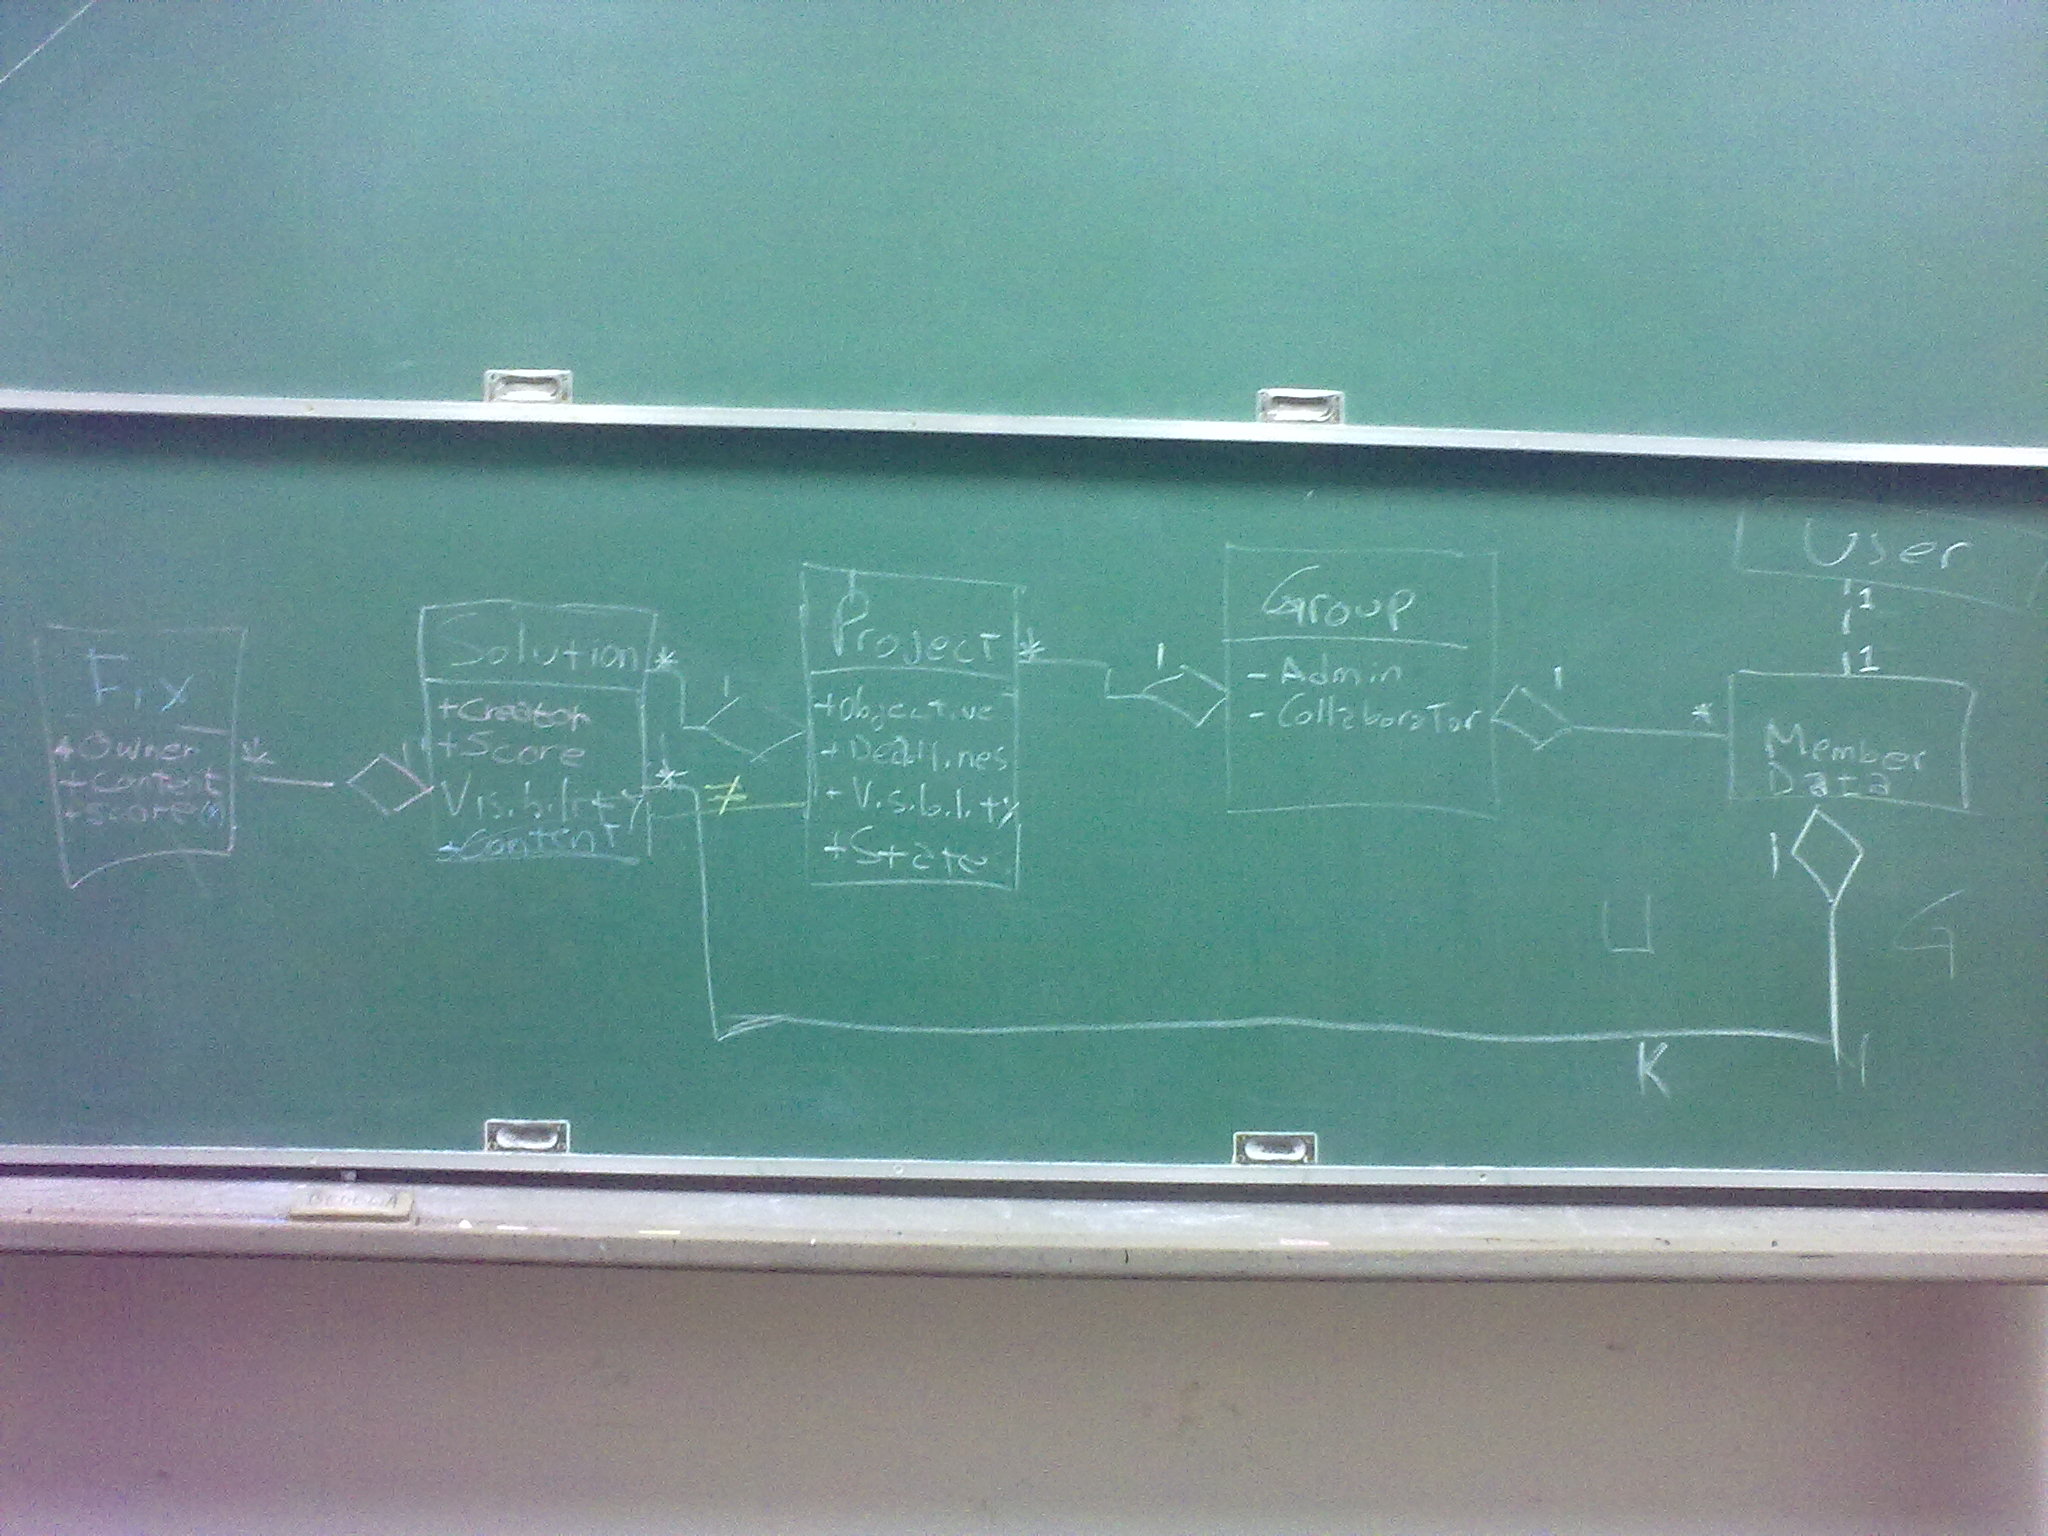 User
1
1
Fix
+Owner
+Content
+Score(n)
*
1
Solution
+Creator
+Score
Visibility
+Content
*
1
*
≠
Project
+Objective
+Deadlines
+Visibility
+State
*
1
Group
-Admin
-Collaborator
1
*
Member
Data
1
U
G
K